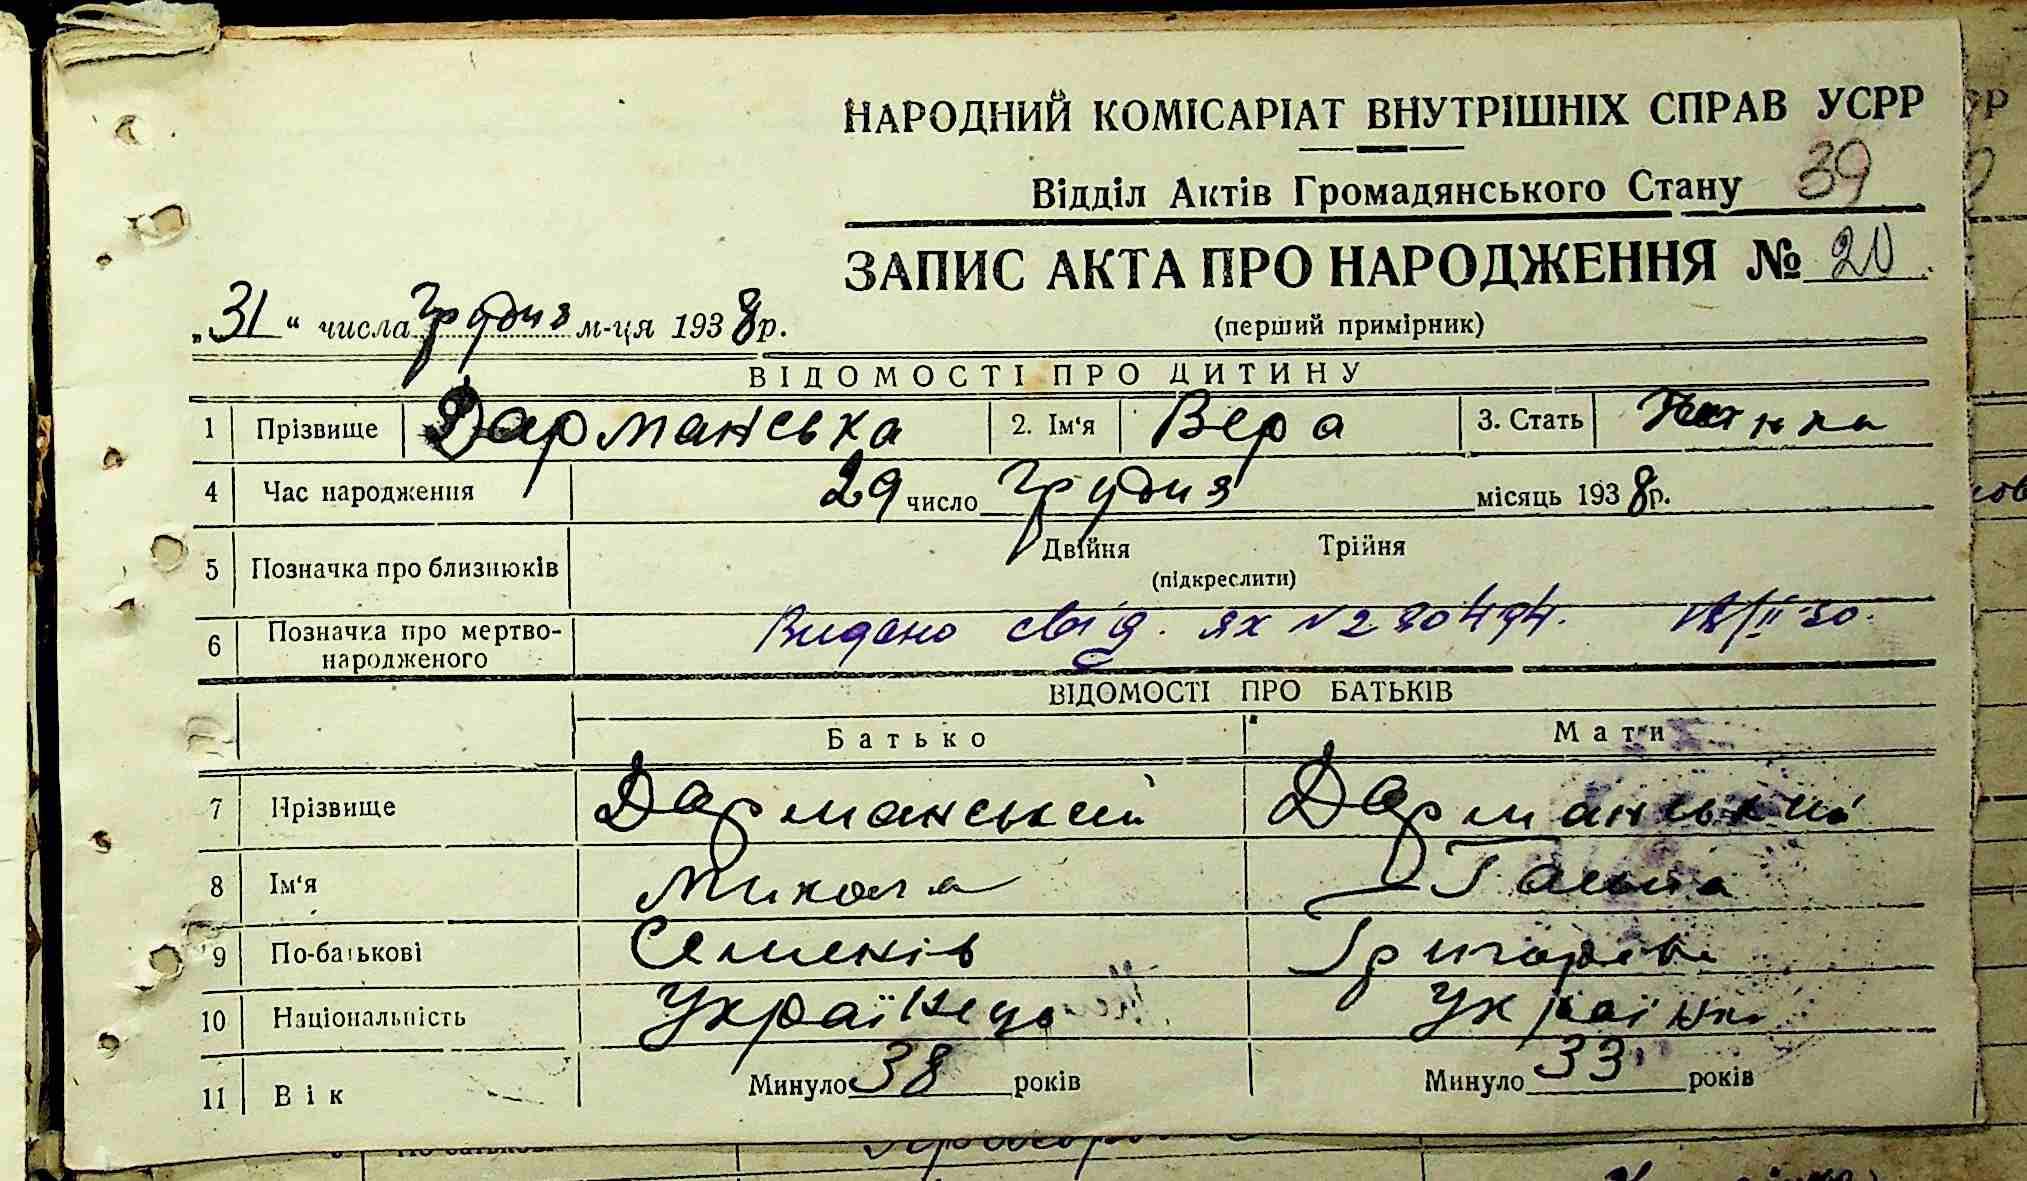 НАРОДНИЙ КОМІСАРІАТ ВНУТРІШНІХ СПРАВ УСРР
Відділ Актів Громадянського Стану 39
ЗАПИС АКТА ПРО НАРОДЖЕННЯ № 20
„31“ числа грудня м-ця 1938р.
(перший примірник)
ВІДОМОСТІ ПРО ДИТИНУ
1 Прізвище Дарманська 2. Ім'я Вера 3. Стать
4 Час народження 29 число грудня місяць 1938р.
5 Позначка про близнюків Двійня Трійня
(підкреслити)
6 Позначка про мертво-
народженого Видано свід.
ВІДОМОСТІ ПРО БАТЬКІВ
Батько Мати
7 Прізвище Дарманський Дарманський
8 Ім'я Микола Галина
9 По-батькові Семенів Григорівна
10 Національність Українець Українка
11 Вік Минуло 38 років Минуло 33 років